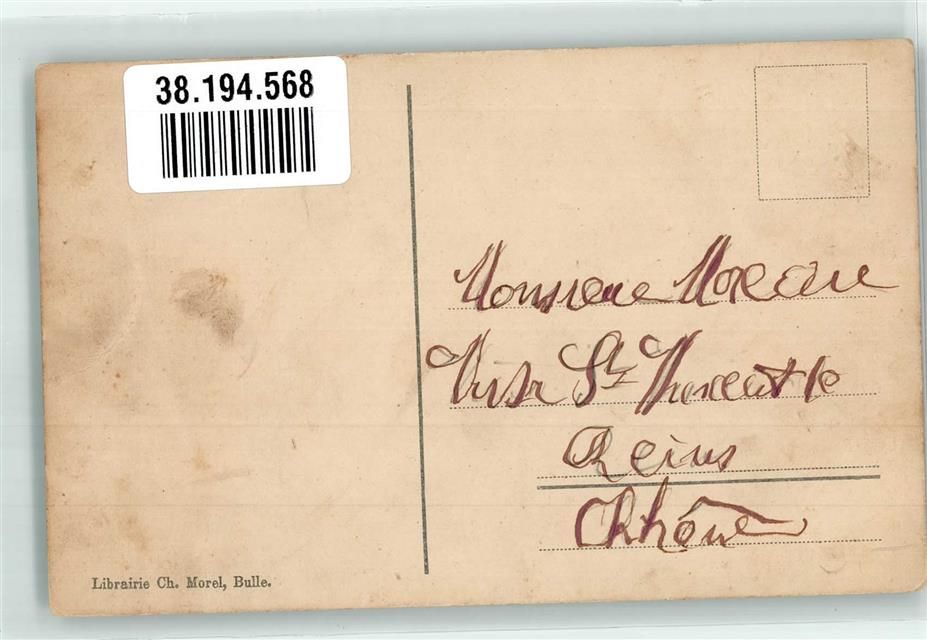 38.194.568
Monsieur Moreau
St Vincent
Reins
Rhône
Librairie Ch. Morel, Bulle.